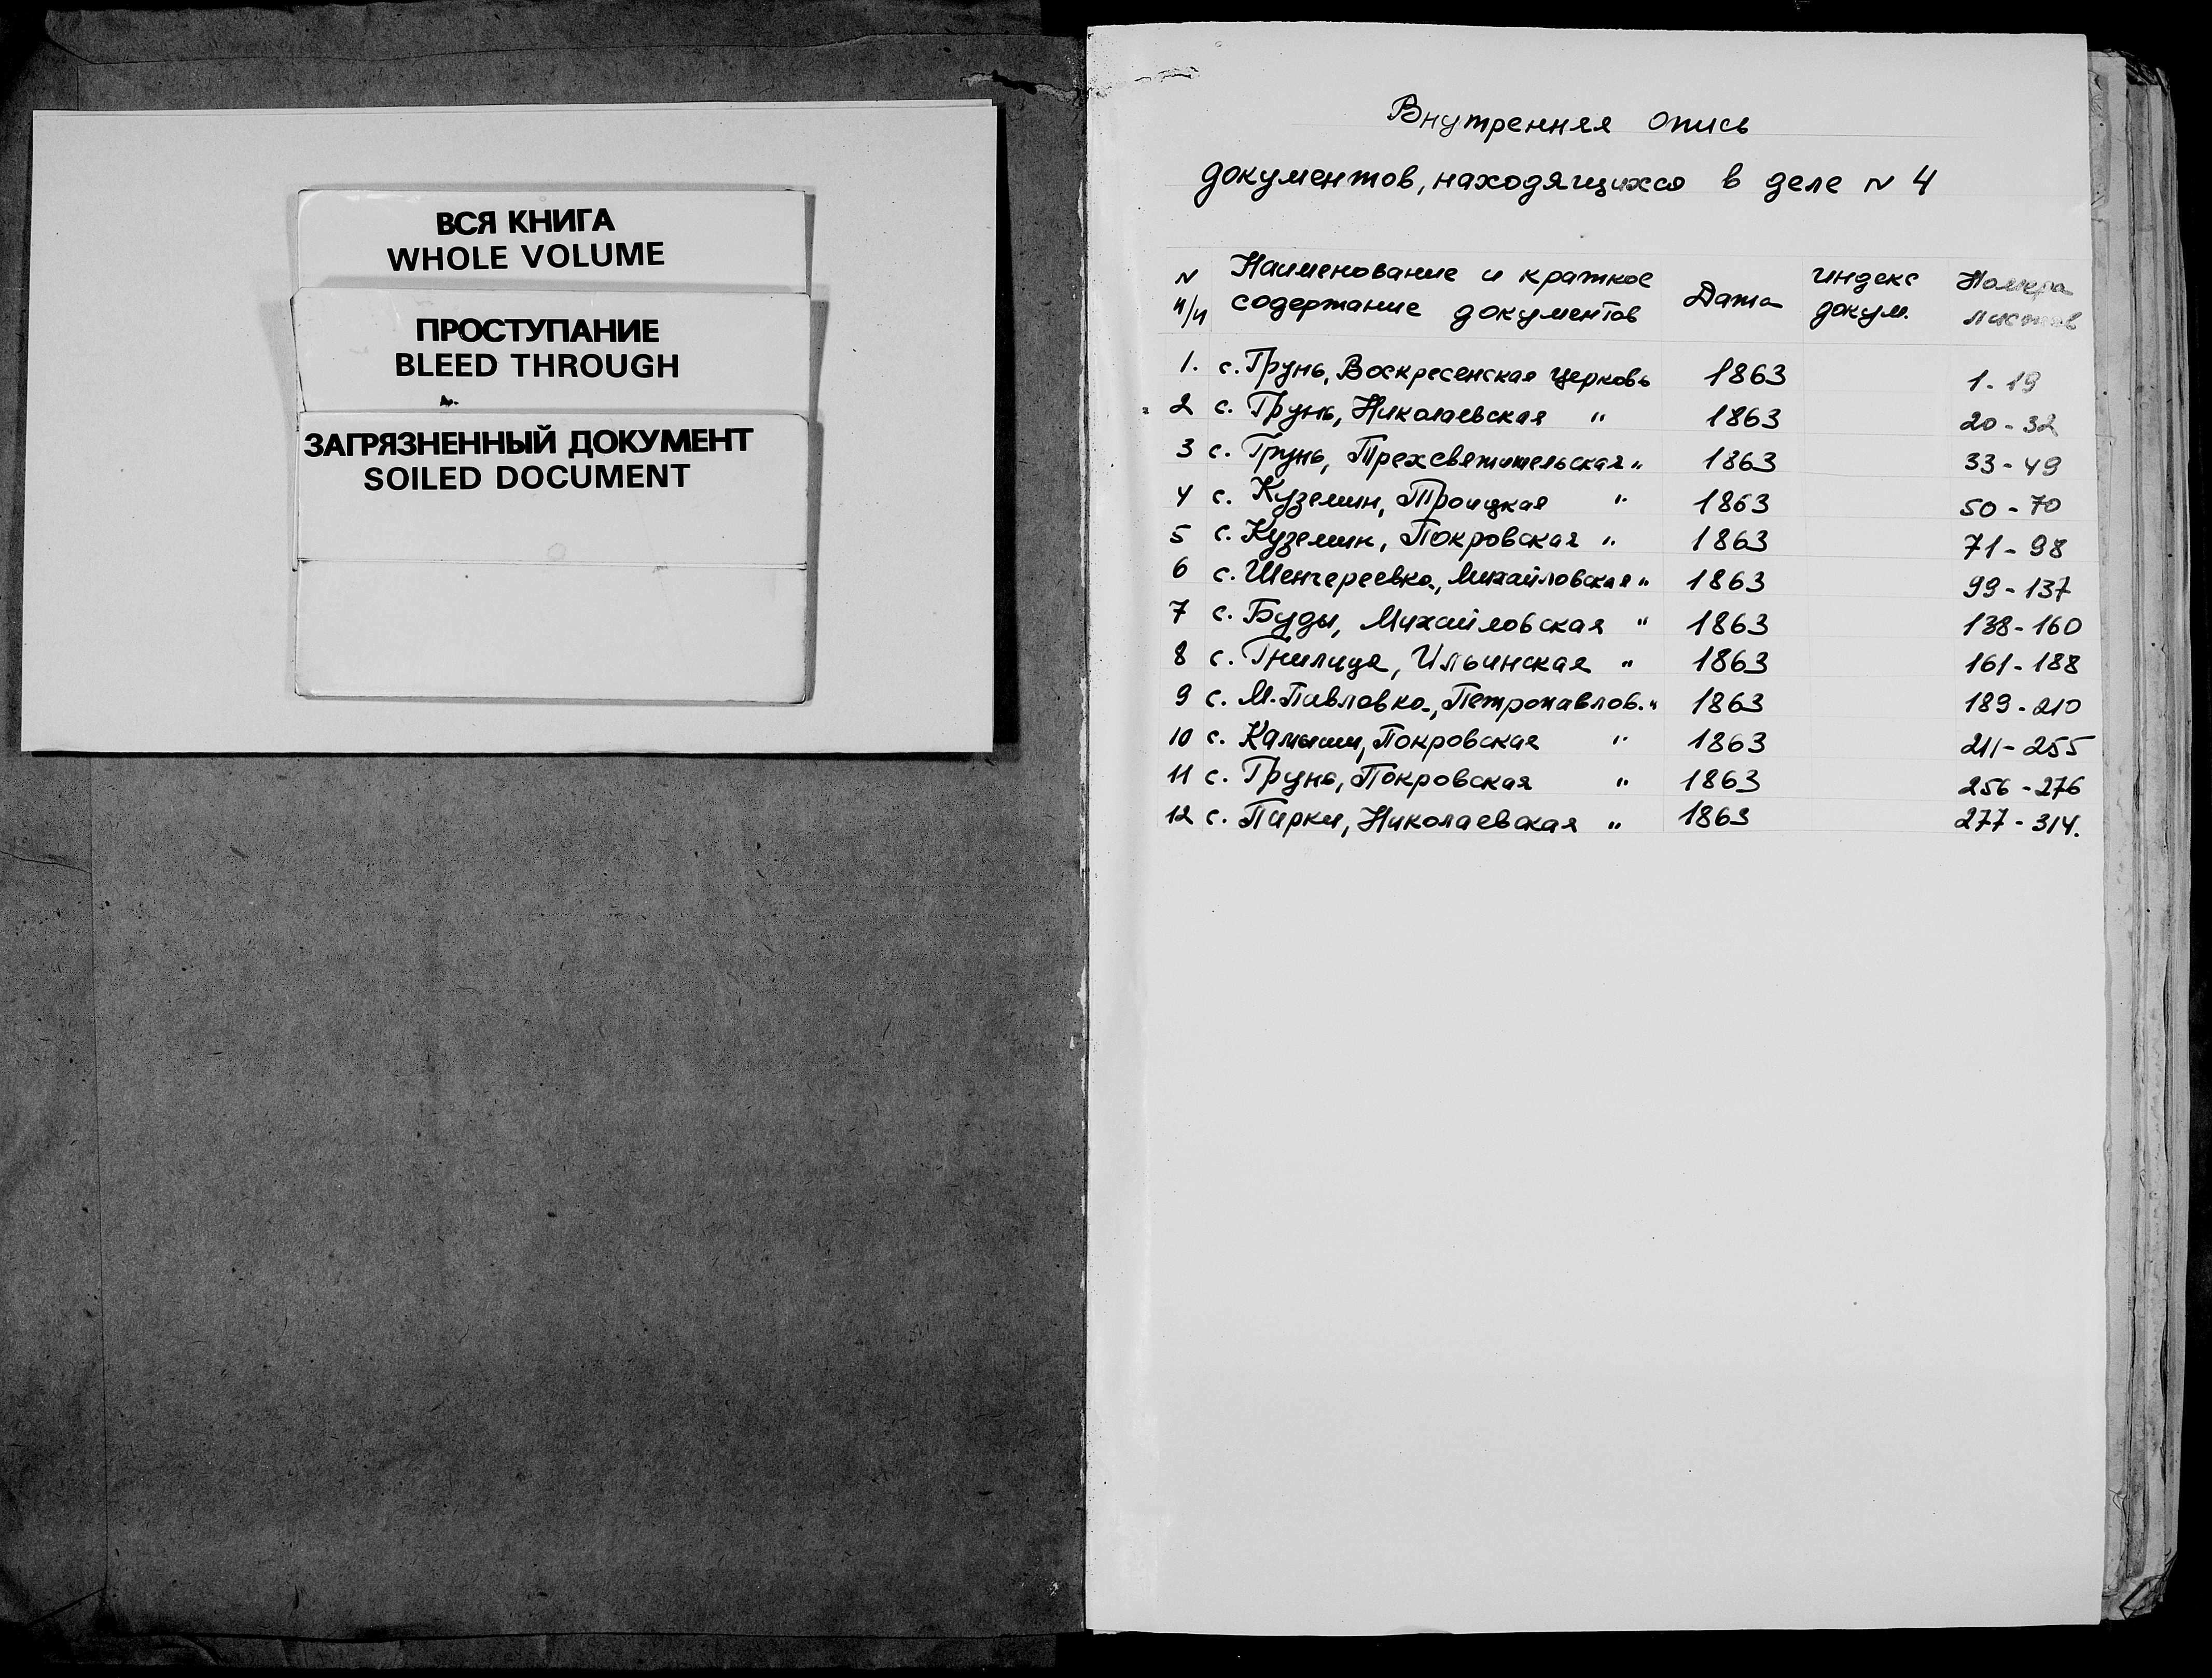 ВСЯ КНИГА
WHOLE VOLUME
ПРОСТУПАНИЕ
BLEED THROUGH
ЗАГРЯЗНЕННЫЙ ДОКУМЕНТ
SOILED DOCUMENT
Внутренняя опись
документов, находящихся в деле N 4
N п/п Наименование и краткое содержание документов Дата индекс докум. Номера листов
1. с. Грунь, Воскресенская церковь 1863 1-19
2 с. Грунь, Николаевская " 1863 20-32
3 с. Грунь, Трехсвятительская " 1863 33-49
4 с. Куземин, Троицкая " 1863 50-70
5 с. Куземин, Покровская " 1863 71-98
6 с. Шенгереевка, Михайловская " 1863 99-137
7 с. Буды, Михайловская " 1863 138-160
8 с. Гнилица, Ильинская " 1863 161-188
9 с. М.Павловка, Петропавлов. " 1863 189-210
10 с. Камыши, Покровская " 1863 211-255
11 с. Грунь, Покровская " 1863 256-276
12 с. Пирки, Николаевская " 1863 277-314.